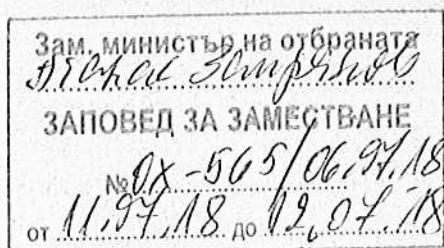 Зам. министър на отбраната
Атанас Запрянов
ЗАПОВЕД ЗА ЗАМЕСТВАНЕ
№ ОХ-565/06.07.18
от 11.07.18 до 12.07.18